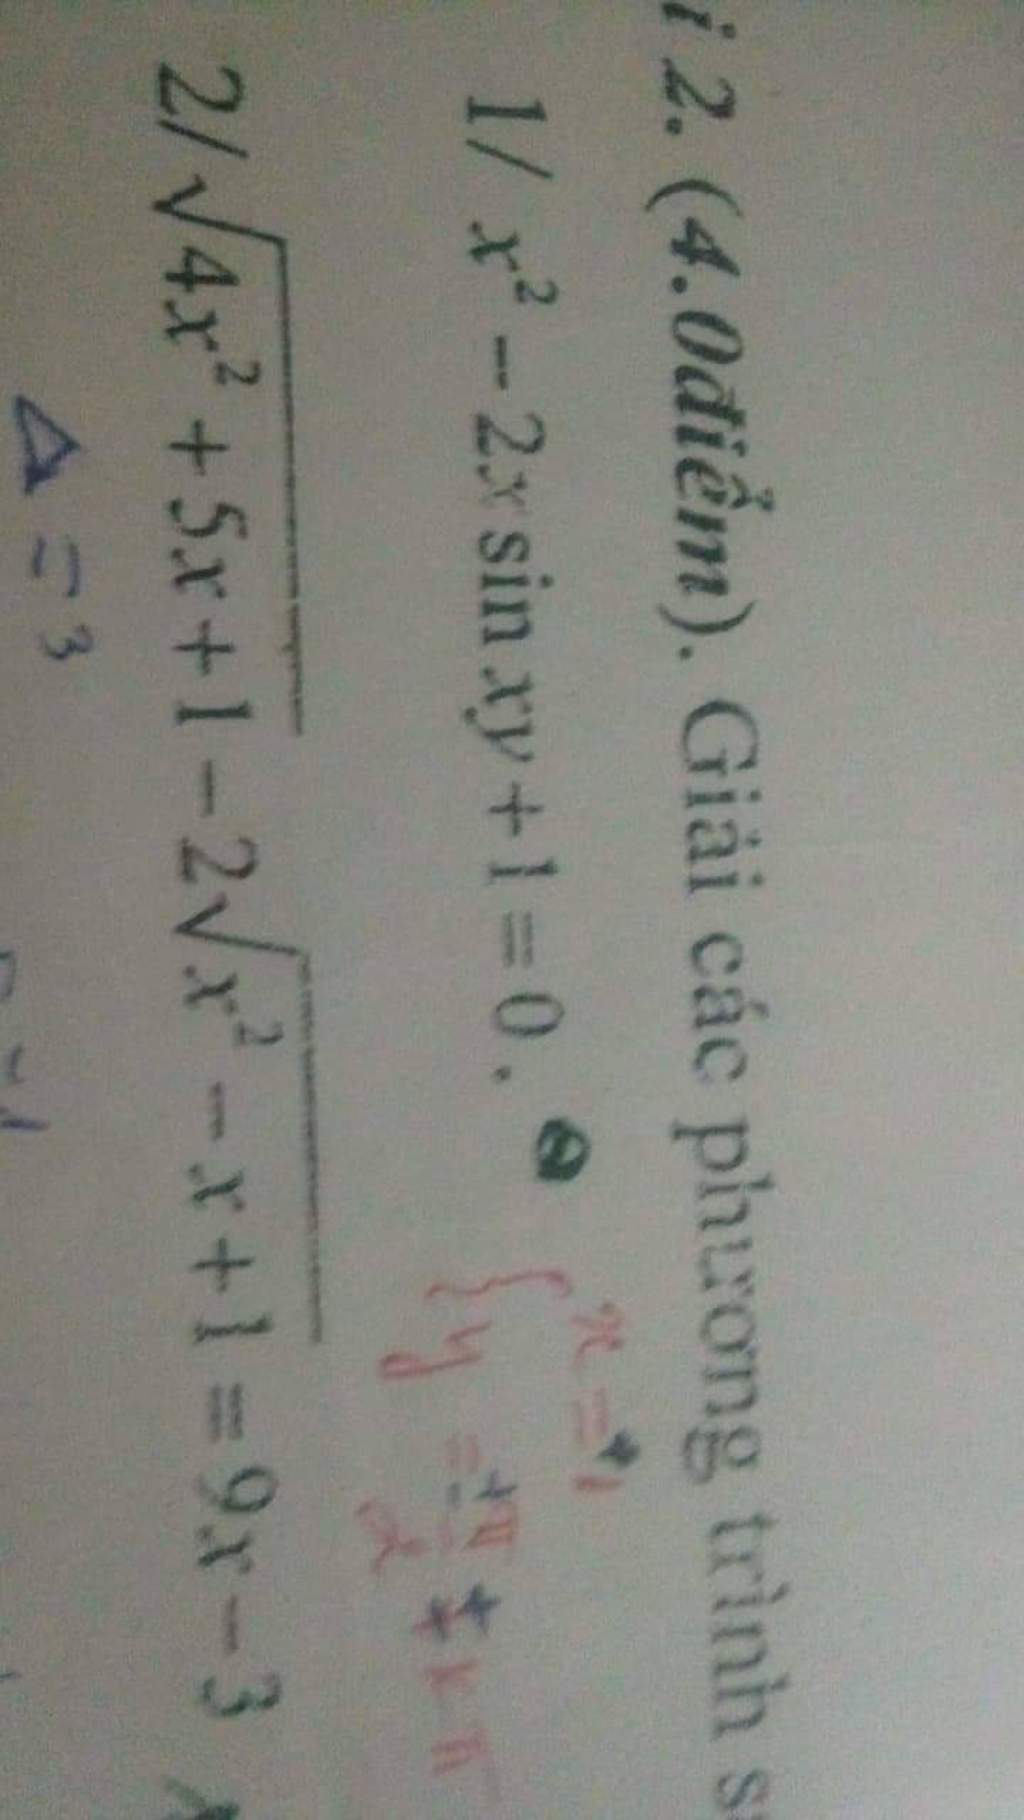 i 2. (4.0điểm). Giải các phương trình s
1/ x² - 2x sin xy + 1 = 0.
{ x = 1
y = ± π/2 + kπ
2/ √(4x² + 5x + 1) - 2√(x² - x + 1) = 9x - 3
Δ = 3